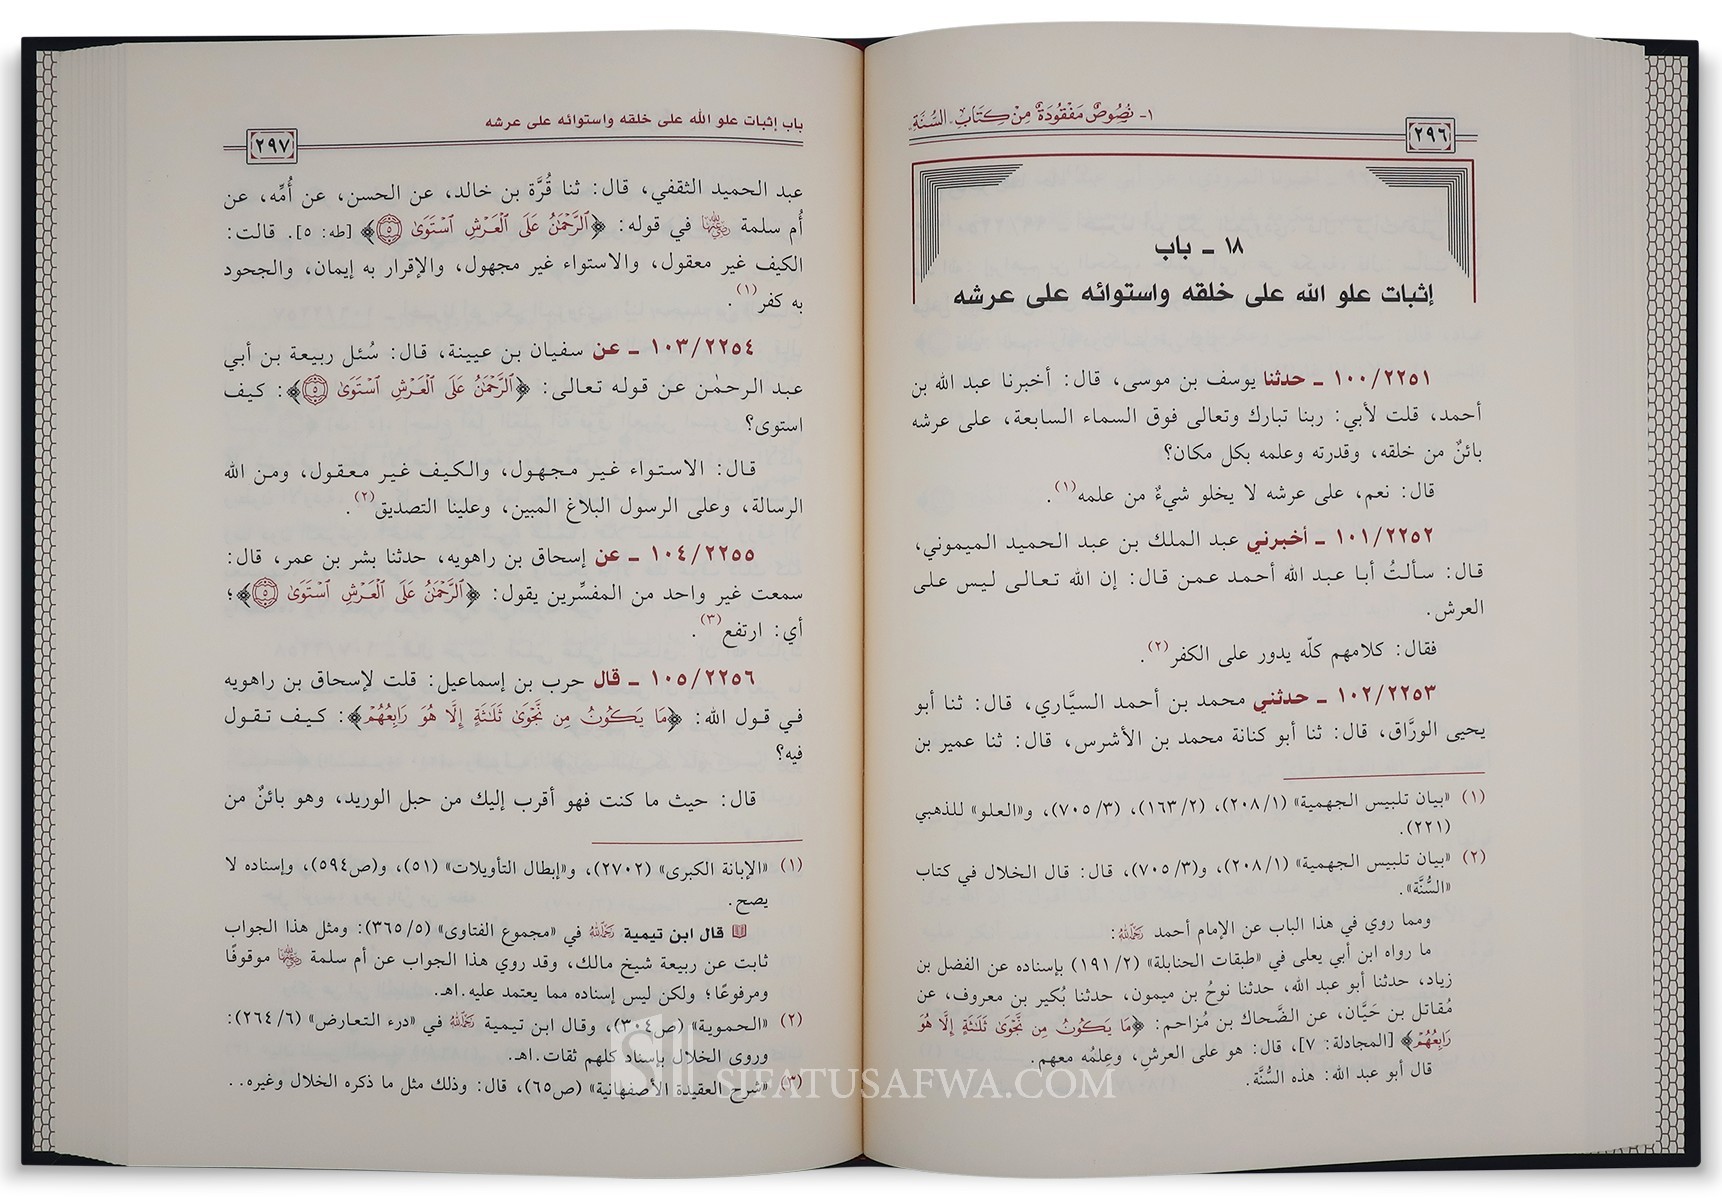 ١- نُصُوصٌ مَفْقُودَةٌ مِنْ كِتَابِ السُّنَّةِ
٢٩٦
١٨ ـ باب
إثبات علو الله على خلقه واستوائه على عرشه
١٠٠/٢٢٥١ ـ حدثنا يوسف بن موسى، قال: أخبرنا عبد الله بن
أحمد، قلت لأبي: ربنا تبارك وتعالى فوق السماء السابعة، على عرشه
بائنٌ من خلقه، وقدرته وعلمه بكل مكان؟
قال: نعم، على عرشه لا يخلو شيءٌ من علمه(١).
١٠١/٢٢٥٢ ـ أخبرني عبد الملك بن عبد الحميد الميموني،
قال: سألتُ أبا عبد الله أحمد عمن قال: إن الله تعالى ليس على
العرش.
فقال: كلامهم كلّه يدور على الكفر(٢).
١٠٢/٢٢٥٣ ـ حدثني محمد بن أحمد السيَّاري، قال: ثنا أبو
يحيى الورَّاق، قال: ثنا أبو كنانة محمد بن الأشرس، قال: ثنا عمير بن
(١) «بيان تلبيس الجهمية» (٢٠٨/١)، (١٦٣/٢)، (٧٠٥/٣)، و«العلو» للذهبي
(٢٢١).
(٢) «بيان تلبيس الجهمية» (٢٠٨/١)، و(٧٠٥/٣)، قال: قال الخلال في كتاب
«السُّنَّة».
ومما روي في هذا الباب عن الإمام أحمد رَحِمَهُ اللهُ:
ما رواه ابن أبي يعلى في «طبقات الحنابلة» (١٩١/٢) بإسناده عن الفضل بن
زياد، حدثنا أبو عبد الله، حدثنا نوحُ بن ميمون، حدثنا بُكير بن معروف، عن
مُقاتل بن حَيَّان، عن الضَّحاك بن مُزاحم: ﴿مَا يَكُونُ مِن نَّجْوَىٰ ثَلَٰثَةٍ إِلَّا هُوَ
رَابِعُهُمْ﴾ [المجادلة: ٧]، قال: هو على العرشِ، وعِلمُه معهم.
قال أبو عبد الله: هذه السُّنَّة.
باب إثبات علو الله على خلقه واستوائه على عرشه
٢٩٧
عبد الحميد الثقفي، قال: ثنا قُرَّة بن خالد، عن الحسن، عن أُمِّه، عن
أُم سلمة رضي الله عنها في قوله: ﴿ٱلرَّحْمَٰنُ عَلَى ٱلْعَرْشِ ٱسْتَوَىٰ ٥﴾ [طه: ٥]. قالت:
الكيف غير معقول، والاستواء غير مجهول، والإقرار به إيمان، والجحود
به كفر(١).
١٠٣/٢٢٥٤ ـ عن سفيان بن عيينة، قال: سُئل ربيعة بن أبي
عبد الرحمٰن عن قوله تعالى: ﴿ٱلرَّحْمَٰنُ عَلَى ٱلْعَرْشِ ٱسْتَوَىٰ ٥﴾: كيف
استوى؟
قال: الاستواء غير مجهول، والكيف غير معقول، ومن الله
الرسالة، وعلى الرسول البلاغ المبين، وعلينا التصديق(٢).
١٠٤/٢٢٥٥ ـ عن إسحاق بن راهويه، حدثنا بشر بن عمر، قال:
سمعت غير واحد من المفسِّرين يقول: ﴿ٱلرَّحْمَٰنُ عَلَى ٱلْعَرْشِ ٱسْتَوَىٰ ٥﴾؛
أي: ارتفع(٣).
١٠٥/٢٢٥٦ ـ قال حرب بن إسماعيل: قلت لإسحاق بن راهويه
في قول الله: ﴿مَا يَكُونُ مِن نَّجْوَىٰ ثَلَٰثَةٍ إِلَّا هُوَ رَابِعُهُمْ﴾: كيف تقول
فيه؟
قال: حيث ما كنت فهو أقرب إليك من حبل الوريد، وهو بائنٌ من
(١) «الإبانة الكبرى» (٢٧٠٢)، و«إبطال التأويلات» (٥١)، و(ص٥٩٤)، وإسناده لا
يصح.
قال ابن تيمية رَحِمَهُ اللهُ في «مجموع الفتاوى» (٣٦٥/٥): ومثل هذا الجواب
ثابت عن ربيعة شيخ مالك، وقد روي هذا الجواب عن أم سلمة رضي الله عنها موقوفًا
ومرفوعًا؛ ولكن ليس إسناده مما يعتمد عليه.اهـ.
(٢) «الحموية» (ص٣٠٤)، وقال ابن تيمية رَحِمَهُ اللهُ في «درء التعارض» (٢٦٤/٦):
وروى الخلال بإسناد كلهم ثقات.اهـ.
(٣) «شرح العقيدة الأصفهانية» (ص٦٥)، قال: وذلك مثل ما ذكره الخلال وغيره..
SIFATUSAFWA.COM